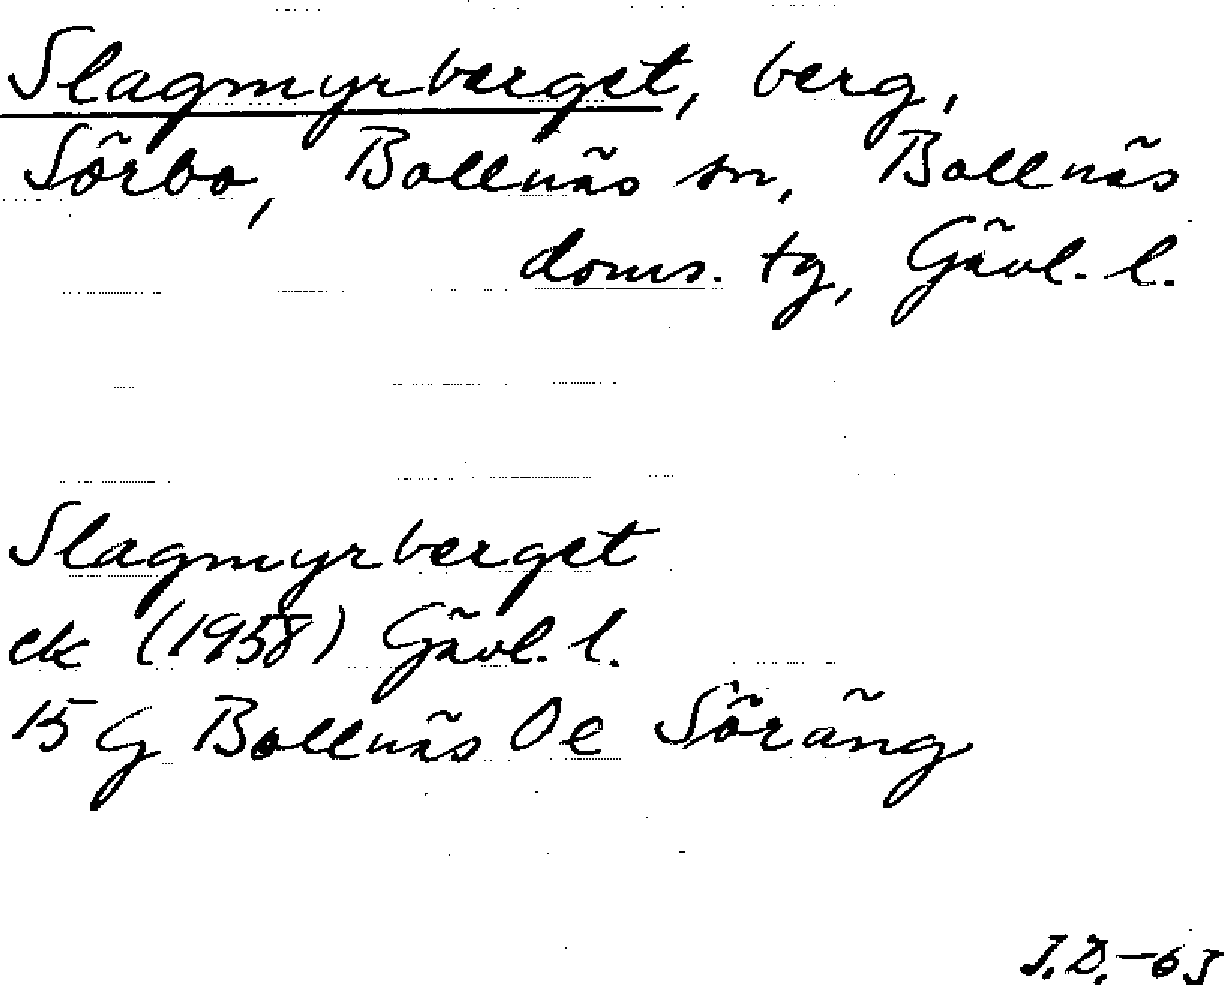 Slagmyrberget, berg,
Sörbo, Bollnäs sn, Bollnäs
doms. tg, Gävl. l.
Slagmyrberget
ek (1958) Gävl. l.
15 G Bollnäs Oe Söräng